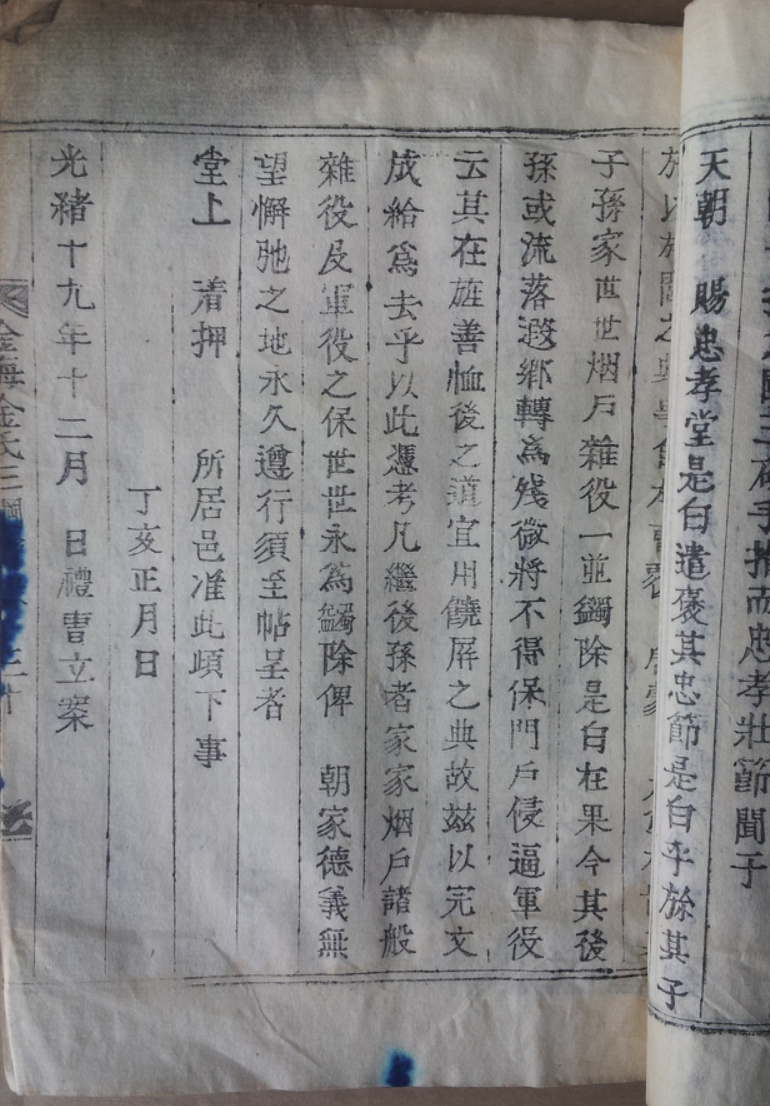 手指而忠孝壯節聞于
天朝 賜忠孝堂是白遣褒其忠節是白乎旀其子
子孫家世世烟戶雜役一並蠲除是白在果今其後
孫或流落遐鄉轉爲残微將不得保門戶侵逼軍役
云其在旌善恤後之道宜用饒屛之典故玆以完文
成給爲去乎以此憑考凡繼後孫者家家烟戶諸般
雜役及軍役之保世世永爲蠲除俾 朝家德義無
望懈弛之地永久遵行須至帖呈者
堂上 着押 所居邑准此頉下事
丁亥正月日
光緖十九年十二月 日禮曺立案
金海金氏三綱